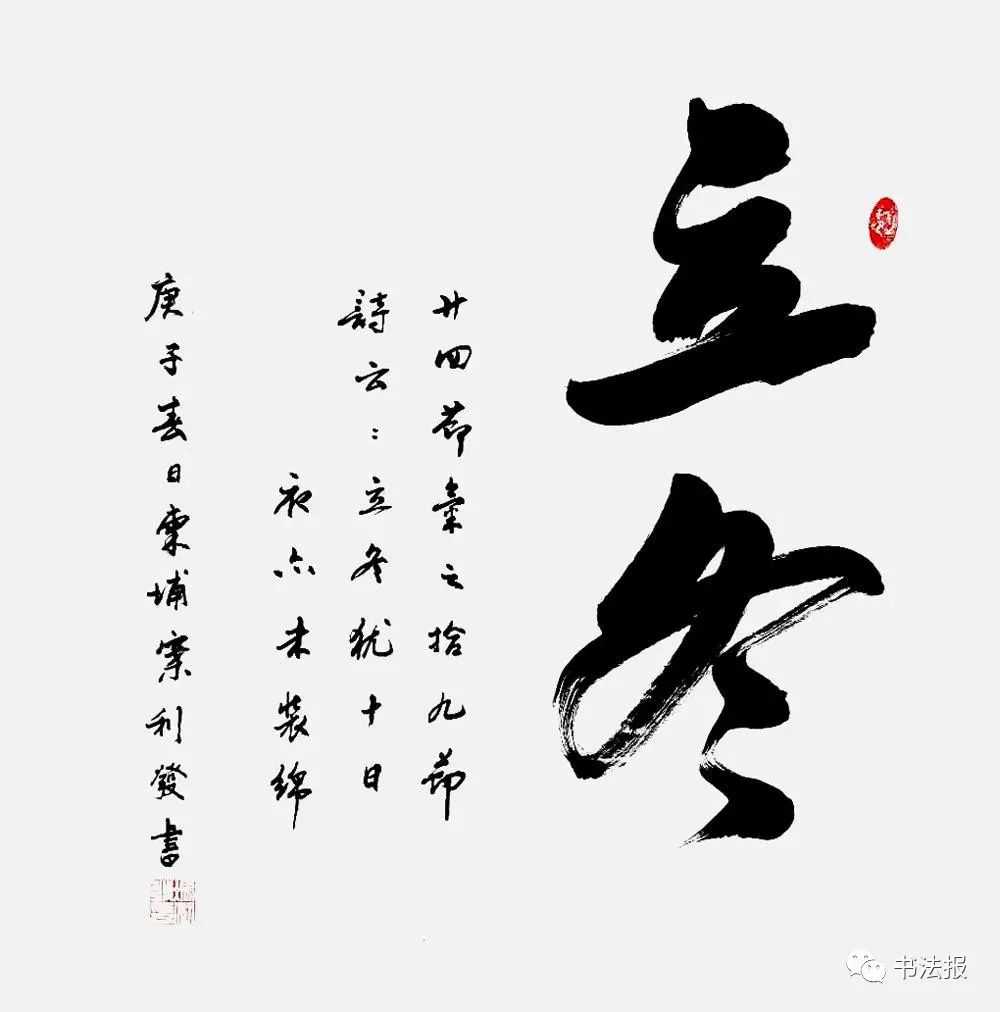 立冬
廿四節氣之拾九節
詩云：立冬犹十日
衣亦未裝綿
庚子春日柬埔寨利發書
书法报